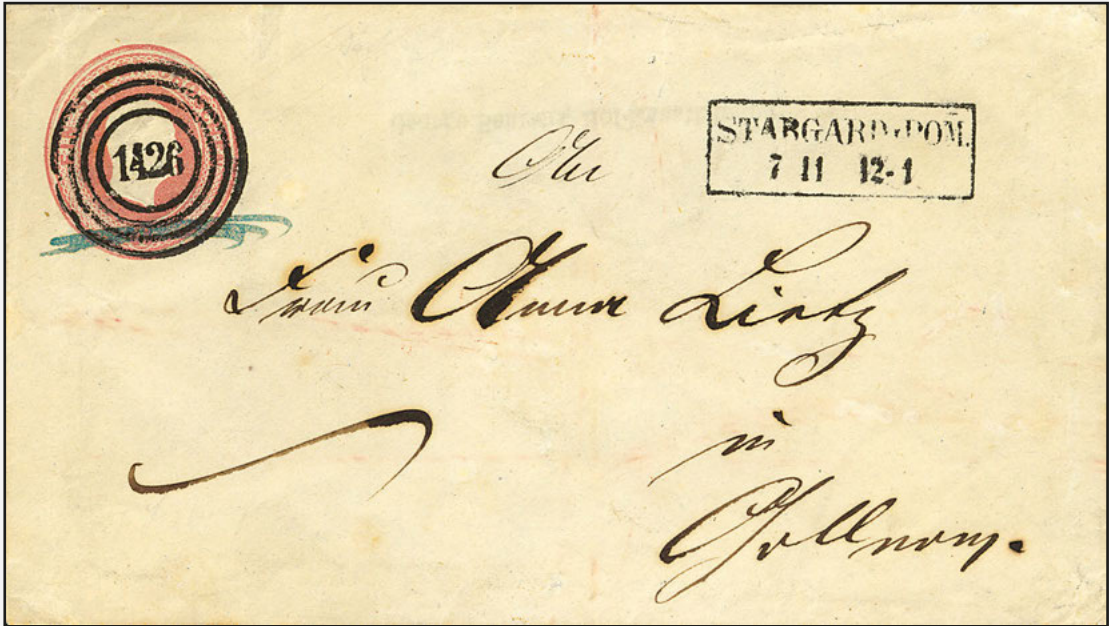 1426
STARGARD·POM.
7 11 12-1
An
Frau Anna Lietz
in
Gollnow.